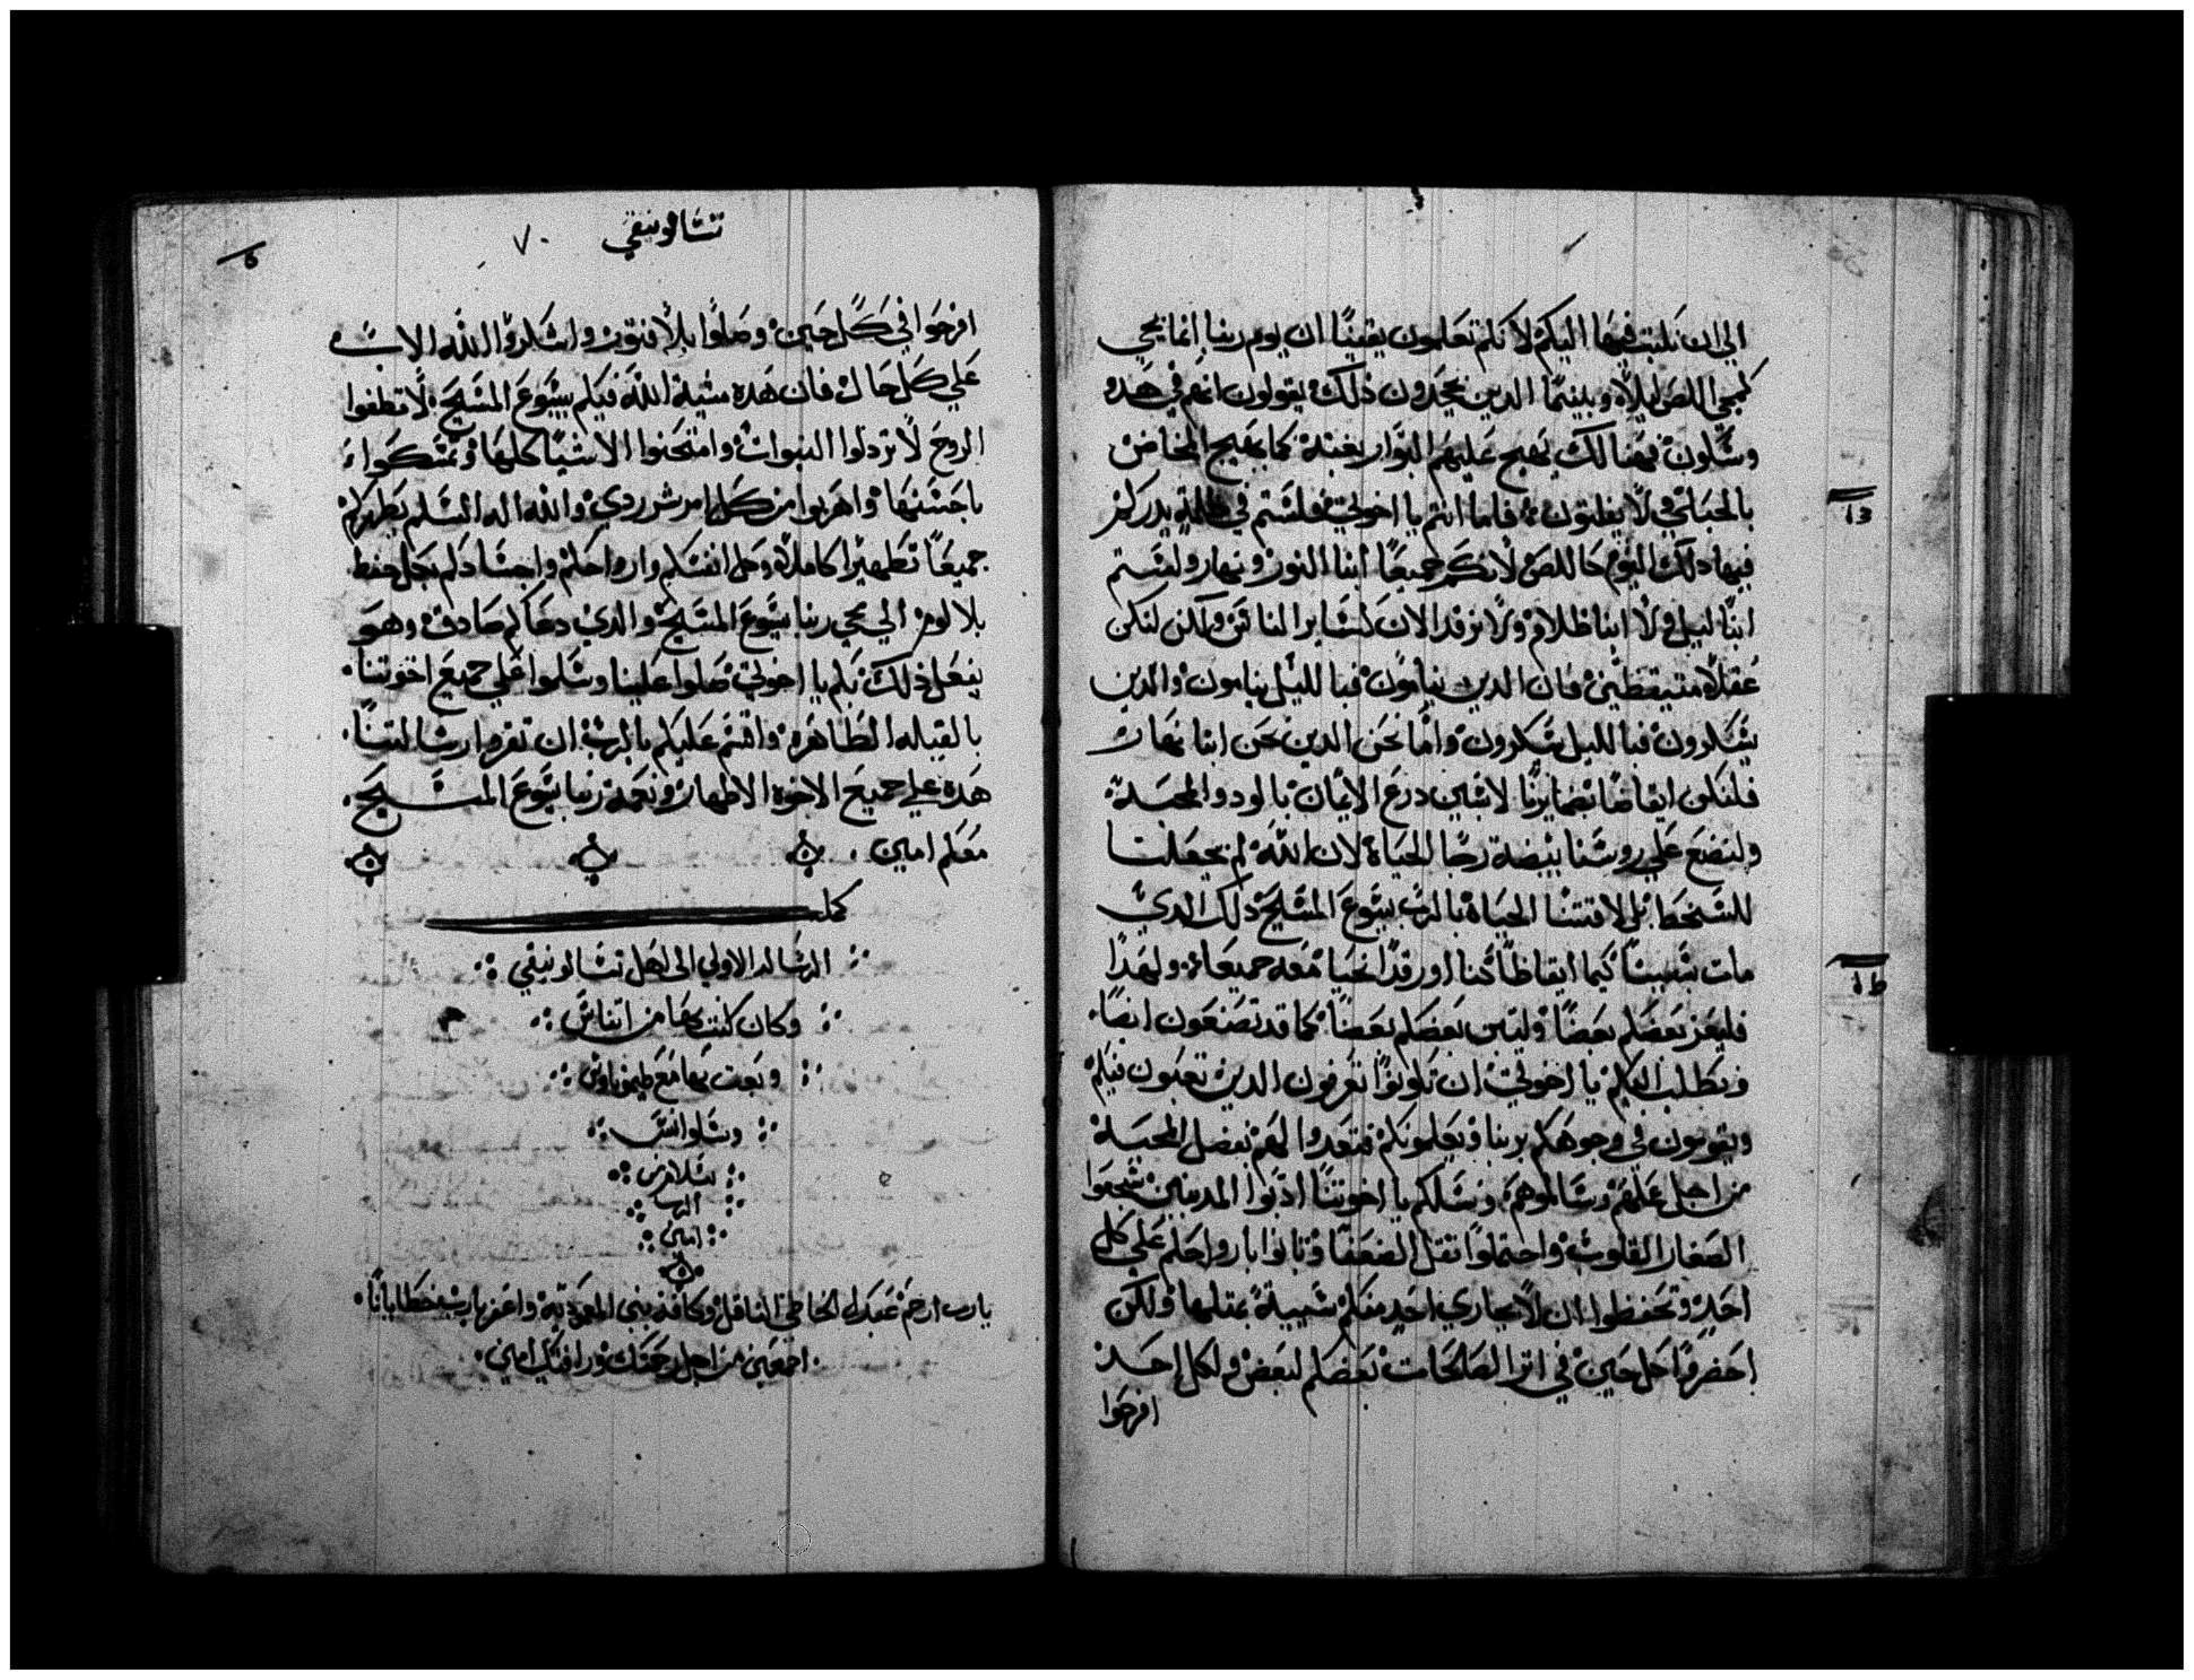 الي ان نكتب فيها اليكم لانكم تعلمون يقينًا ان يوم ربنا انما يجي
كمجي اللص ليلًا وبينما الدين يجحدون ذلك يقولون انهم في هدو
وسَلون فهنالك يهيج عليهم البوار بغتة كما يهيج المخاض
بالحبلي ولا يفلتون فاما انتم يا اخوتي فلستم في ظلمة يدرككم
فيها دلك اليوم كاللص لانكم جميعًا ابنا النور ونهار ولستم
ابنا ليل ولا ابنا ظلام ولا نرقد الان كسَاير الناس ولكن لنكن
عقلا متيقظين فان الدين ينامون فبالليل ينامون والدين
يسَكرون فبالليل يسَكرون واما نحن الدين نحن ابنا نهار
فلنكن ايقاضًا بضمايرنا لابسَين درع الايمان بالود والمحبة
ولنضع علي روسَنا بيضة رجا الحياة لان الله لم يجعلنا
للسَخط بل لاقتنا الحياة بالرب يسَوع المسَيح دلك الدي
مات بسَببنا كيما ايقاظًا كنا او رقدًا نحيا معه جميعا ولهدا
فليعز بعضكم بعضًا وليبن بعضكم بعضًا كما قد تصنعون ايضًا
ونطلب اليكم يا اخوتي ان تكونوا تعرفون الدين تعبون فيكم
ويقومون في وجوهكم بربنا ويعلمونكم فتعدوا لهم بفضل المحبة
من اجل عملهم وسَالموهم ونسَلكم يا اخوتنا ادبوا المدنبين شجعوا
الصغار القلوب واحتملوا تقل الضعفا وتانوا بارواحكم علي كل
احد وتحفظوا ان لا يجاري احد منكم سَيية بمتلها ولكن
احضروا كل حين في اتر الصالحات بعضكم لبعض ولكل احد
افرحوا
تسَالونيقي
٧٠
افرحوا في كل حين وصلوا بلا فتور واشكروا الله الاب
علي كل حال فان هده مشية الله فيكم بيسَوع المسَيح لا تطفوا
الروح لا تردلوا النبوات وامتحنوا الاشيا كلها وتمسَكوا
باحسَنها واهربوا من كل امر شر ردي والله اله السَلم يطهركم
جميعًا تطهيرًا كاملا وكل انفسَكم وارواحكم واجسَادكم يحفظ
بلا لوم الي مجي ربنا يسَوع المسَيح والدي دعاكم صادق وهو
يفعل ذلك بكم يا اخوتي صلوا علينا وسَلموا علي جميع اخوتنا
بالقبله الطاهره واقسَم عليكم بالرب ان تقروا رسَالتنا
هده علي جميع الاخوه الاطهار ونعمة ربنا يسَوع المسَيح
معكم امين
كملت
الرسَاله الاولي الى اهل تسَالونيقي
وكان كتب بها من اتناسَ
وبعت بها مع طيموتاوسَ
وسَلوانسَ
بسَلام من
الرب
امين
يارب ارحم عبدك الخاطي الناقل وكافة بني المعمودية واغفر يارب خطايانا
اجمعين من اجل رحمتك ورافتك امين